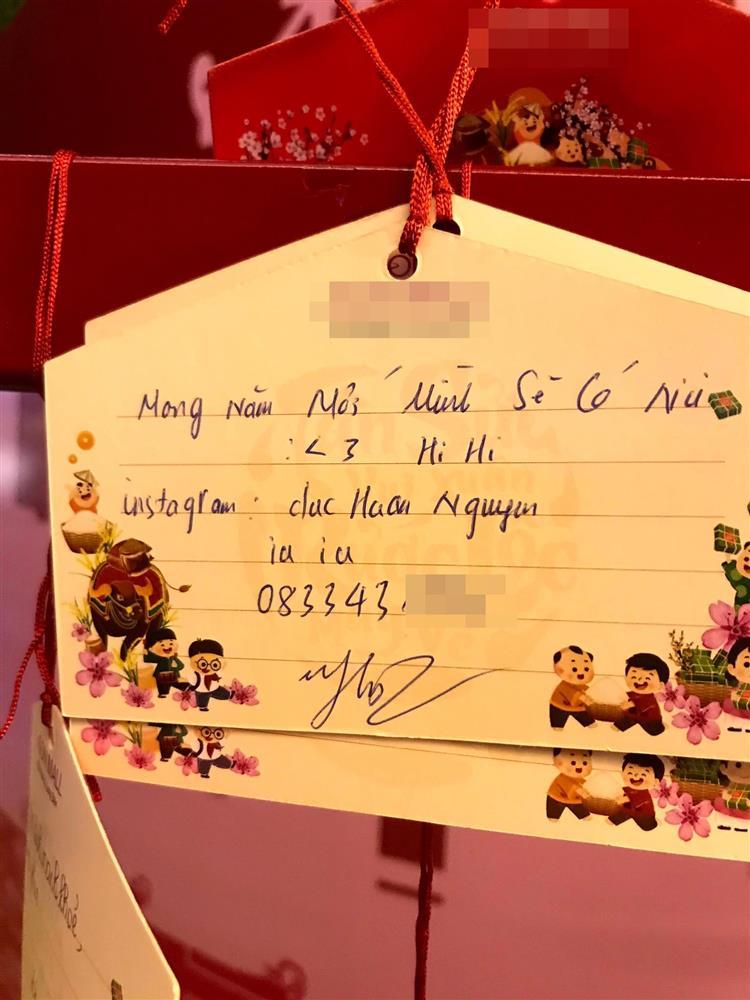 Mong Năm Mới Mình Sẽ Có
:<3 Hi Hi
instagram: duc Nguyen
iu iu
083343